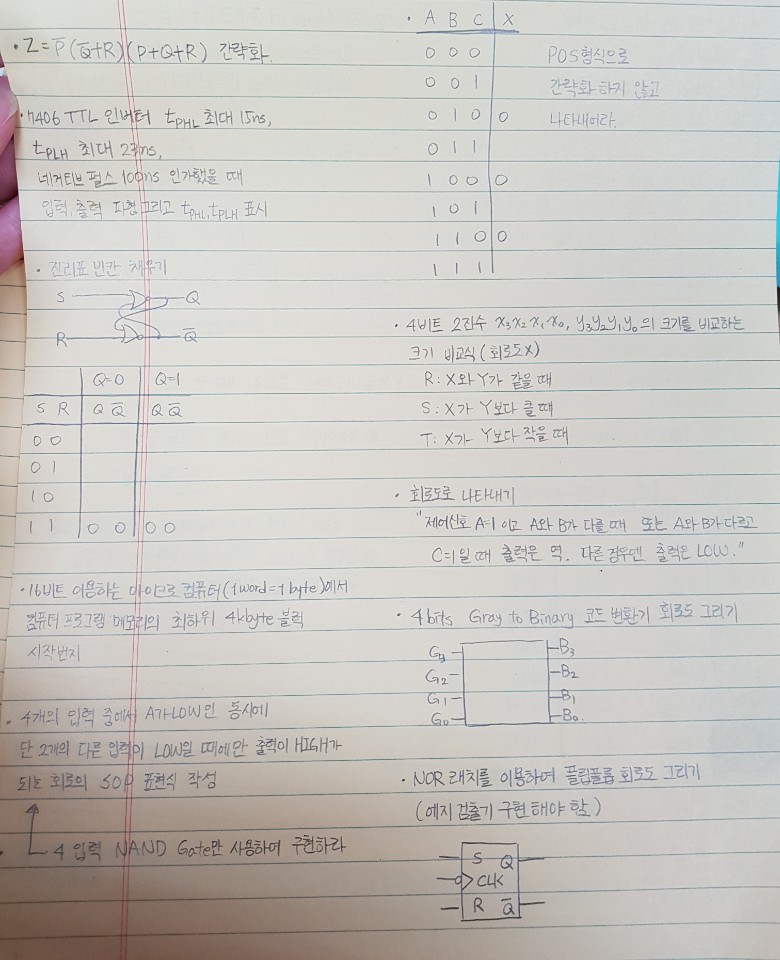 · Z = P̅(Q̅+R)(P+Q+R) 간략화.
· 7406 TTL 인버터 tPHL 최대 15ns,
tPLH 최대 23ns,
네거티브 펄스 100ns 인가했을 때
입력, 출력 파형그리고 tPHL, tPLH 표시
· 진리표 빈칸 채우기
S Q
R Q̅
Q=0 Q=1
S R Q Q̅ Q Q̅
0 0
0 1
1 0
1 1 0 0 0 0
· 16비트 이용하는 마이크로 컴퓨터(1word=1byte)에서
컴퓨터 프로그램 메모리의 최하위 4kbyte 블럭
시작번지
· 4개의 입력 중에서 A가 LOW인 동시에
단 2개의 다른 입력이 LOW일 때에만 출력이 HIGH가
되는 회로의 SOP 표현식 작성
· 4 입력 NAND Gate만 사용하여 구현하라
· A B C X
0 0 0
0 0 1
0 1 0 0
0 1 1
1 0 0 0
1 0 1
1 1 0 0
1 1 1
POS형식으로
간략화 하지 않고
나타내어라.
· 4비트 2진수 x3x2x1x0, y3y2y1y0의 크기를 비교하는
크기 비교식 (회로도x)
R: X와 Y가 같을 때
S: X가 Y보다 클 때
T: X가 Y보다 작을 때
· 회로도로 나타내기
"제어신호 A=1이고 A와 B가 다를 때 또는 A와 B가 다르고
C=1일 때 출력은 역. 다른 경우엔 출력은 LOW."
· 4bits Gray to Binary 코드 변환기 회로도 그리기
G3 B3
G2 B2
G1 B1
G0 B0.
· NOR 래치를 이용하여 플립플롭 회로도 그리기
(에지 검출기 구현 해야 함)
S Q
CLK
R Q̅